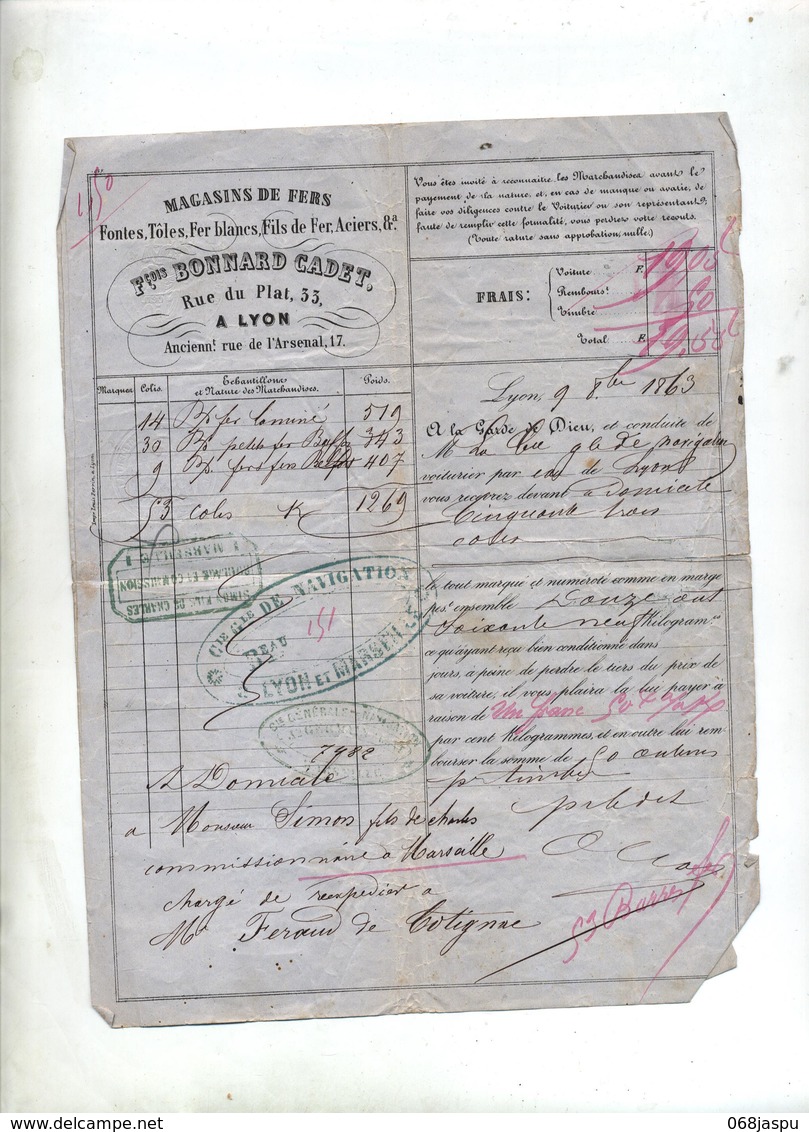 1,50
MAGASINS DE FERS
Fontes, Tôles, Fer blancs, Fils de Fer, Aciers, &a.
Fçois BONNARD CADET,
Rue du Plat, 33,
A LYON
Ancienn.t rue de l'Arsenal, 17.
Vous êtes invité à reconnaître les Marchandises avant le
payement de la nature, et, en cas de manque ou avarie, de
faire vos diligences contre le Voiturier ou son représentant;
faute de remplir cette formalité, vous perdrez votre recours.
(Toute rature sans approbation, nulle.)
FRAIS:
Voiture F. 19,05
Rembours.t
Timbre 50
Total F. 19,55
Marques Colis. Échantillons et Nature des Marchandises. Poids.
14 fer laminé 519
30 petits fer 343
9 407
53 colis K 1269
Lyon, 9 8bre 1863
A la Garde de Dieu, et conduite de
M La Cie gle de navigation
voiturier par eau de Lyon
vous recevrez devant à domicile
Cinquante trois
colis
le tout marqué et numéroté comme en marge
pes.t ensemble Douze cent
soixante neuf Kilogram.es
ce qu'ayant reçu bien conditionné dans
jours, à peine de perdre le tiers du prix de
sa voiture, il vous plaira lui payer à
raison de Un franc 50
par cent Kilogrammes, et en outre lui rem-
bourser la somme de 50 centimes
pr timbre
SIMON FILS DE CHARLES
MARSEILLE
Cie Gle DE NAVIGATION
LYON et MARSEILLE
151
Cie GÉNÉRALE
7982
A Domicile
a Monsieur Simon fils de charles
commissionnaire a Marseille
chargé de reexpedier a
Mr Feraud de Cotignac
53 Barres
068jaspu